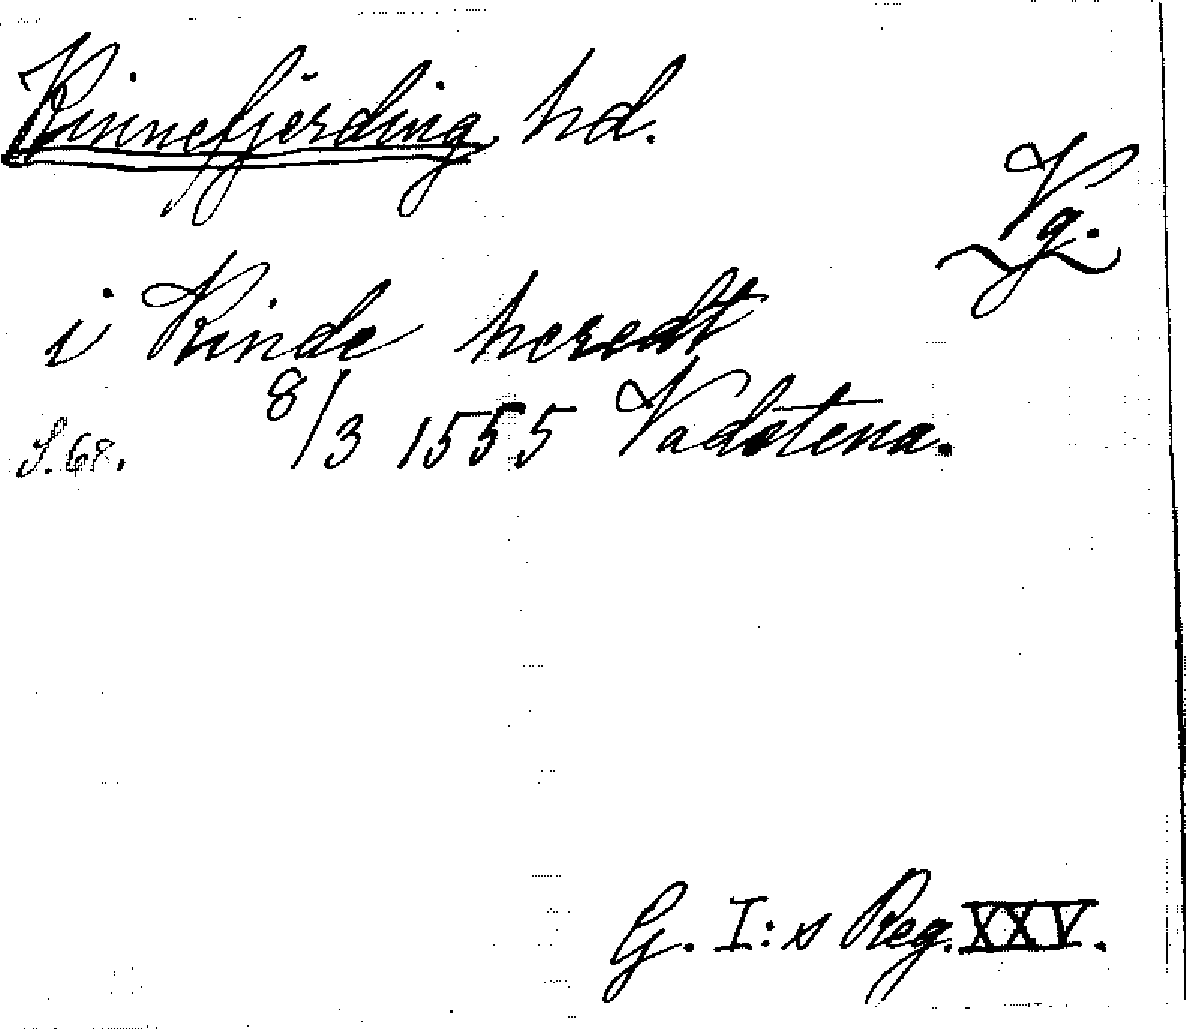 Kinnefjärding hd.
Vg.
i Kinde heredt
8/3 1555 Vadstena.
S. 68.
G. I:s Reg. XXV.